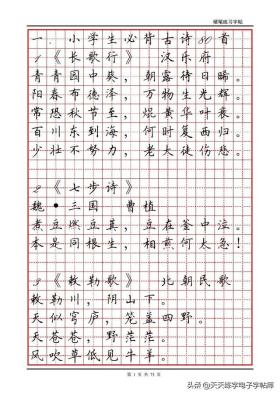 硬笔练习字帖
一.小学生必背古诗80首
1《长歌行》 汉乐府
青青园中葵，朝露待日晞。
阳春布德泽，万物生光辉。
常恐秋节至，焜黄华叶衰。
百川东到海，何时复西归。
少壮不努力，老大徒伤悲。
2《七步诗》
魏•三国 曹植
煮豆燃豆萁，豆在釜中泣。
本是同根生，相煎何太急！
3《敕勒歌》 北朝民歌
敕勒川，阴山下。
天似穹庐，笼盖四野。
天苍苍，野茫茫。
风吹草低见牛羊。
第 1 页 共 75 页
头条 @天天练字电子字帖库